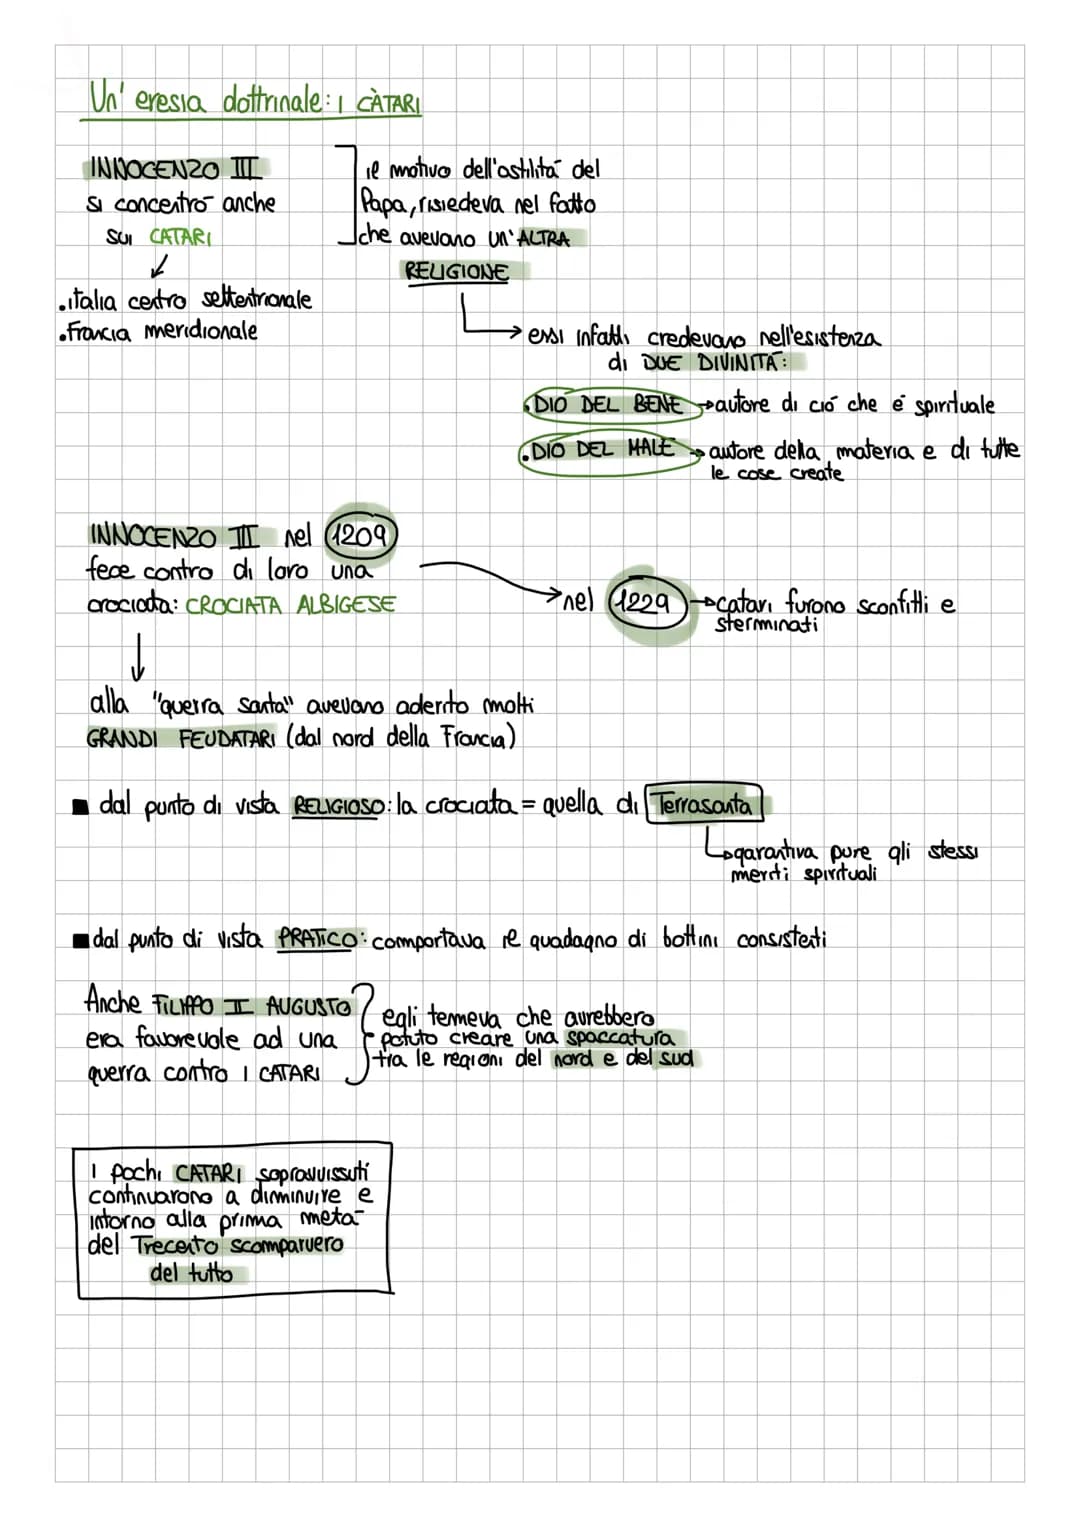 Un' eresia dottrinale: I CÀTARI
INNOCENZO III
si concentrò anche
sui CATARI
.italia centro settentrionale
.Francia meridionale
il motivo dell'ostilitá del
Papa, risiedeva nel fatto
che avevano un'ALTRA
RELIGIONE
essi infatti credevano nell'esistenza
di DUE DIVINITÁ:
.DIO DEL BENE → autore di ció che é spirituale
.DIO DEL MALE → autore della materia e di tutte
le cose create
INNOCENZO III nel 1209
fece contro di loro una
crociata: CROCIATA ALBIGESE
nel 1229 → catari furono sconfitti e
sterminati
alla "guerra santa" avevano aderito molti
GRANDI FEUDATARI (dal nord della Francia)
■ dal punto di vista RELIGIOSO: la crociata = quella di Terrasanta
garantiva pure gli stessi
meriti spirituali
■ dal punto di vista PRATICO: comportava il guadagno di bottini consistenti
Anche FILIPPO II AUGUSTO
era favorevole ad una
guerra contro i CATARI
egli temeva che avrebbero
potuto creare una spaccatura
tra le regioni del nord e del sud
I pochi CATARI sopravvissuti
continuarono a diminuire e
intorno alla prima metá
del Trecento scomparvero
del tutto